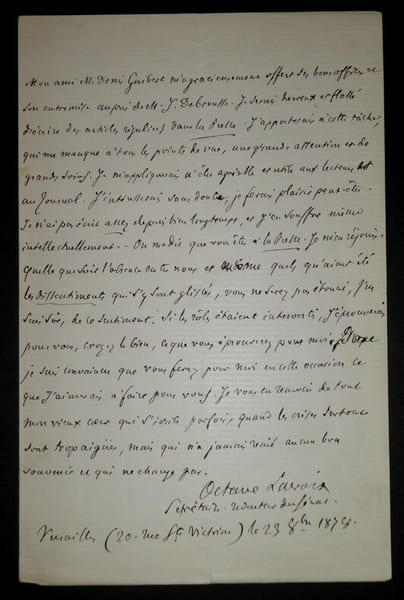 Mon ami M. Denis Guibert m'a gracieusement offert ses bons offices et
son entremise auprès de M. J. Debrousse. Je serais heureux et flatté
d'écrire des articles réguliers dans la Presse. J'apporterais à cette tâche,
qui me manque à tous les points de vue, une grande attention et de
grands soins. Je m'appliquerais à être agréable et utile aux lecteurs et
au Journal. J'intéresserais sans doute, je ferais plaisir peut-être.
Je n'ai pas écrit assez depuis bien longtemps, et j'en souffre
intellectuellement. - On me dit que vous êtes à la Presse. Je m'en réjouis.
Quelle que soit l'absence entre nous et même quels qu'aient été
les dissentiments qui s'y sont glissés, vous ne serez pas étonné, j'en
suis sûr, de ce sentiment. Si les rôles étaient intervertis, j'éprouverais
pour vous, croyez le bien, ce que vous éprouverez pour moi. Et
je suis convaincu que vous ferez pour moi en cette occasion ce
que j'aimerais à faire pour vous. Je vous en remercie de tout
mon vieux cœur qui s'irrite parfois, quand les crises surtout
sont trop aiguës, mais qui n'a jamais renié aucun bon
souvenir et qui ne change pas.
Octave Lacroix
Secrétaire-rédacteur du Sénat.
Versailles (20 - rue St Victoire) le 23 8bre 1878.